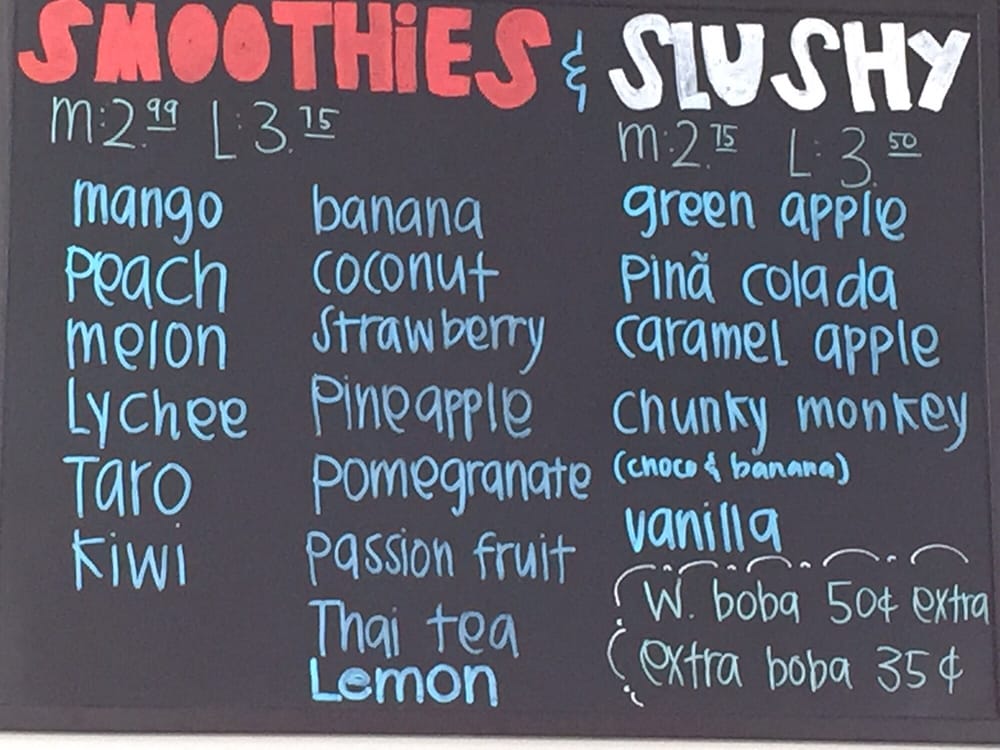 SMOOTHiES & SLUSHY
M:2.99 L:3.75
mango
Peach
melon
Lychee
Taro
Kiwi
banana
coconut
Strawberry
Pineapple
pomegranate
passion fruit
Thai tea
Lemon
M:2.75 L:3.50
green apple
Pinã colada
caramel apple
chunky monkey
(choco & banana)
vanilla
W. boba 50¢ extra
extra boba 35¢